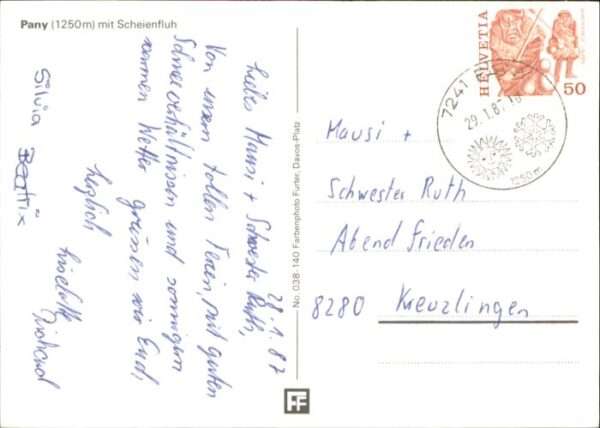 Pany (1250m) mit Scheienfluh
28.1.87
Liebes Mausi + Schwester Ruth,
Von unsern tollen Ferien mit guten
Schneeverhältnissen und sonnigem
warmen Wetter grüssen wir Euch,
herzlich Liselotte
Silvia
Beatrix
No. 038-140 Farbenphoto Furter, Davos-Platz
FF
HELVETIA
50
7241
29.1.87
1250m
Mausi +
Schwester Ruth
Abend Frieden
8280 Kreuzlingen